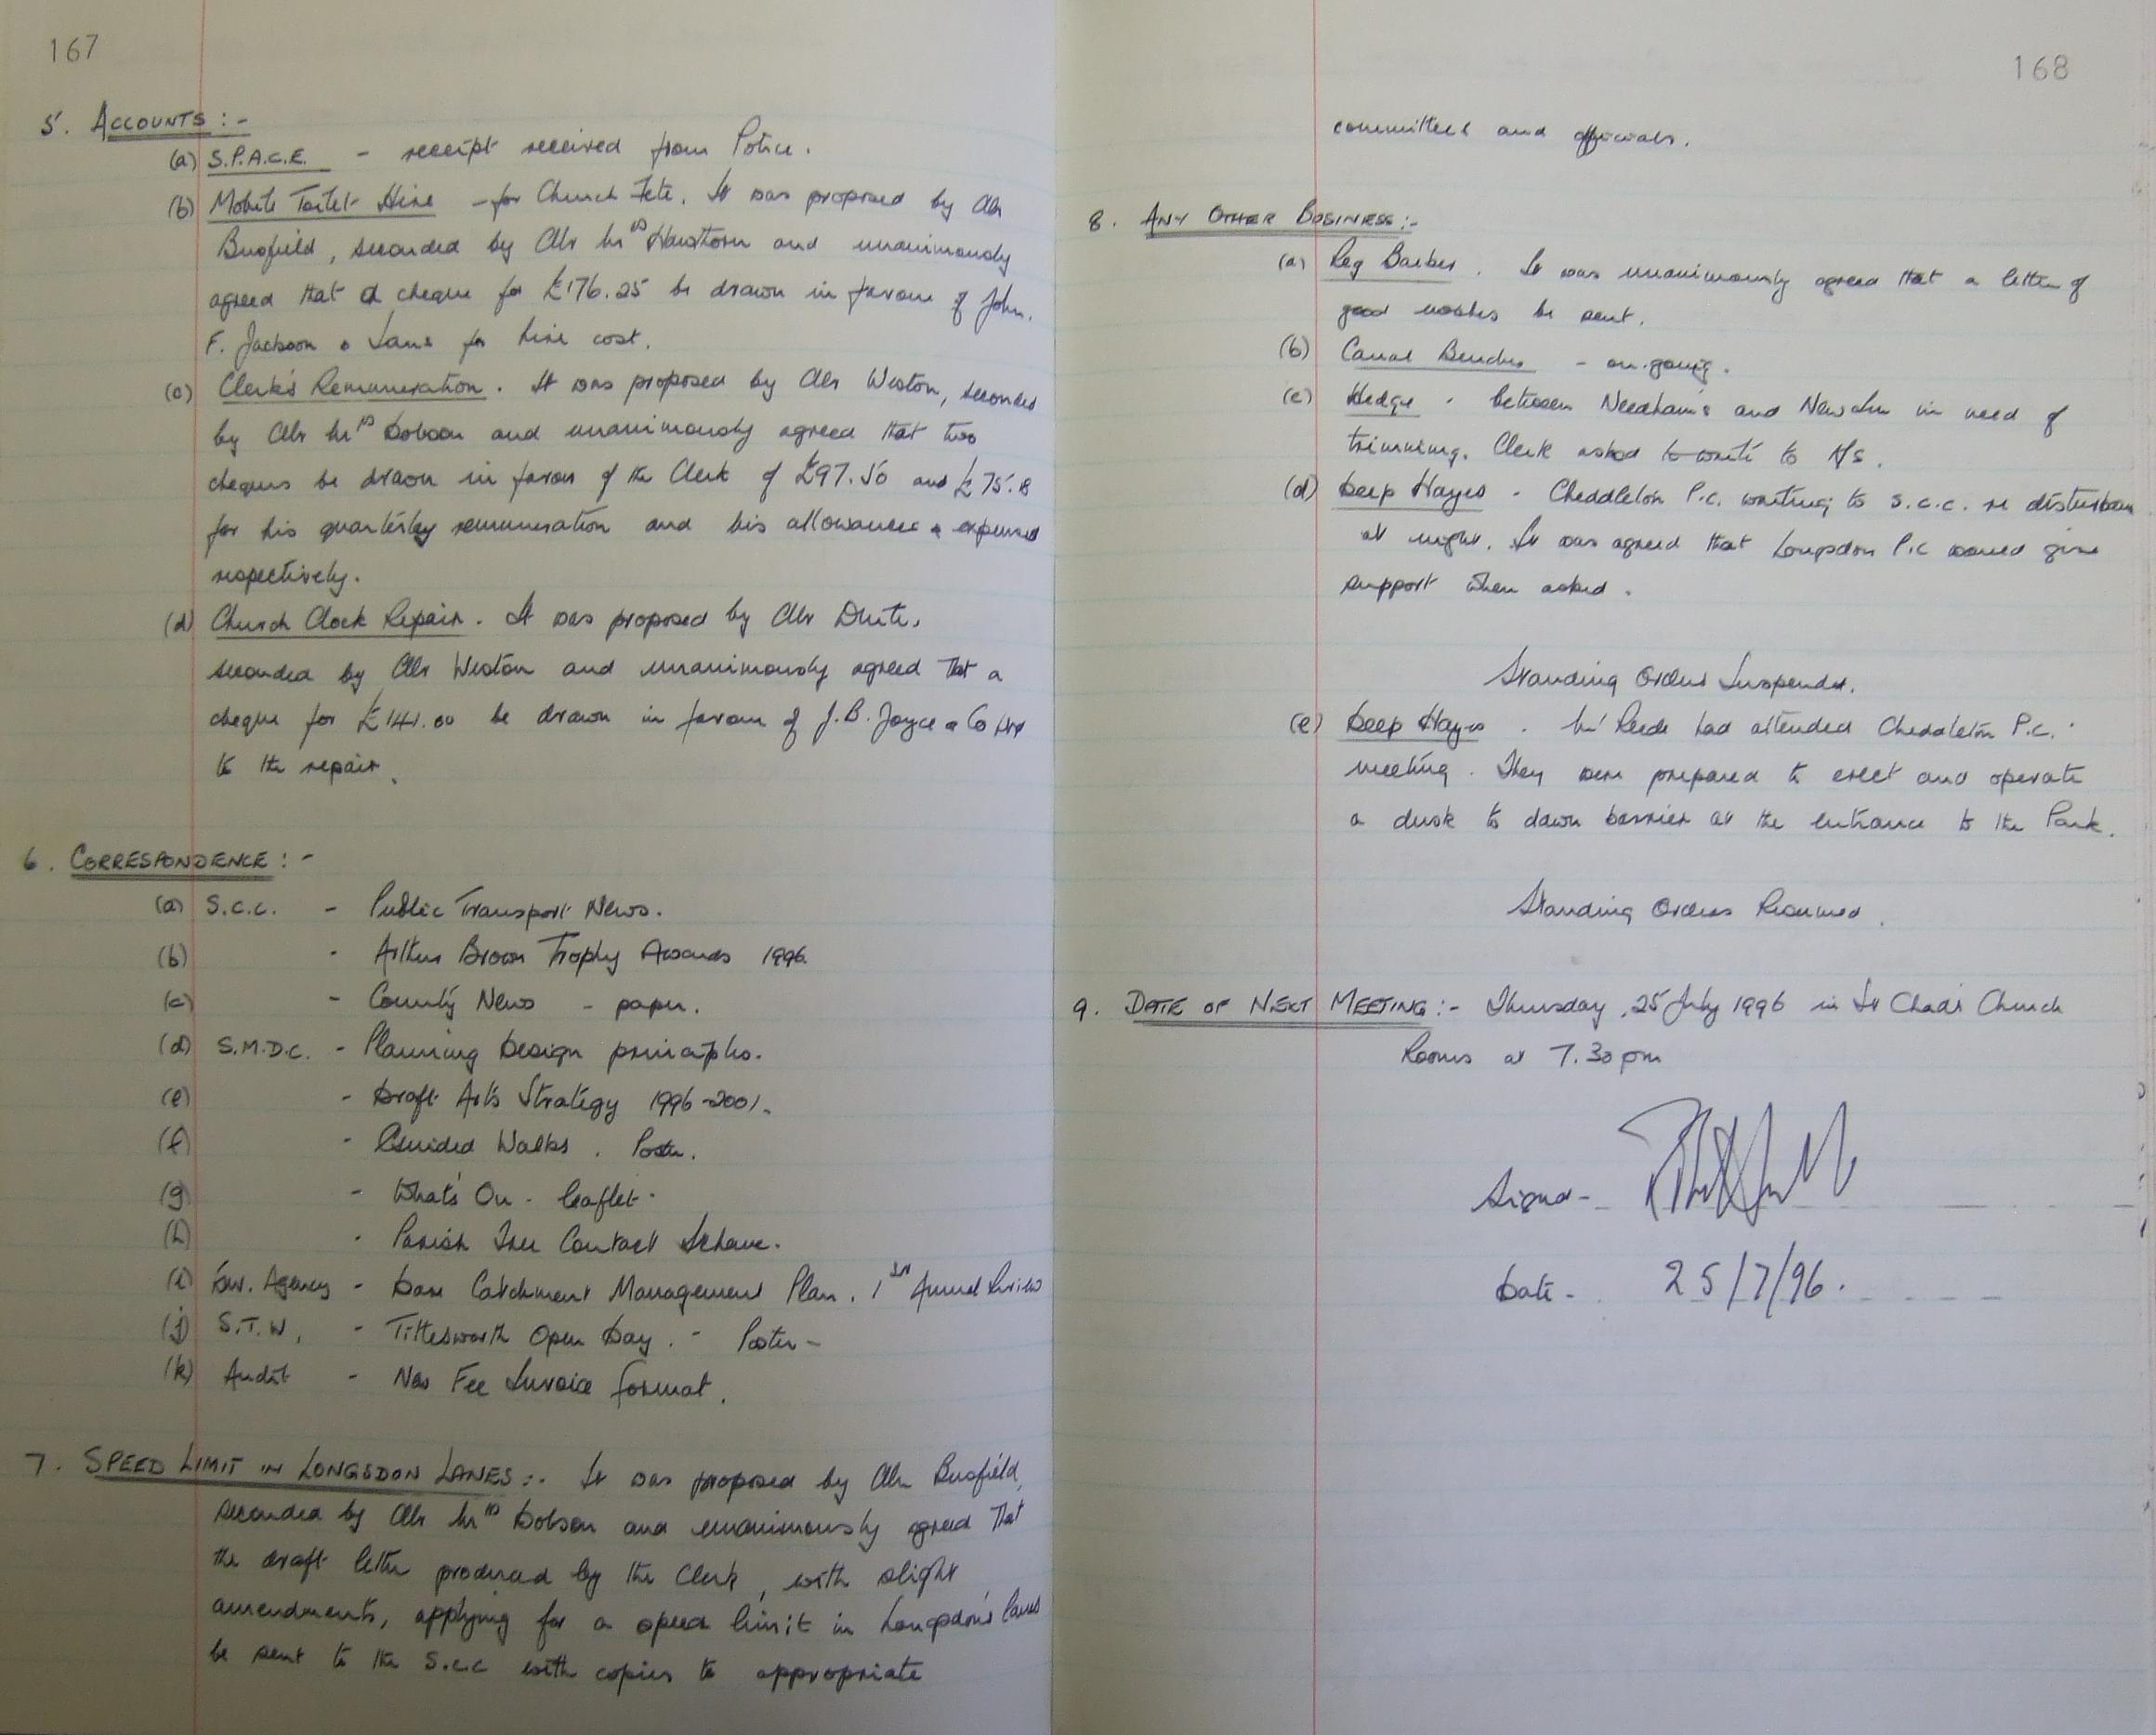 167
5. ACCOUNTS :-
(a) S.P.A.C.E. - receipt received from Police.
(b) Mobile Toilet Hire - for Church Fete. It was proposed by Cllr
Busfield, seconded by Cllr Mrs Hawthorn and unanimously
agreed that a cheque for £176.25 be drawn in favour of John.
F. Jackson & Sons for hire cost.
(c) Clerk's Remuneration. It was proposed by Cllr Weston, seconded
by Cllr Mrs Dobson and unanimously agreed that two
cheques be drawn in favour of the Clerk of £97.50 and £75.8
for his quarterley remuneration and his allowances & expenses
respectively.
(d) Church Clock Repair. It was proposed by Cllr
seconded by Cllr Weston and unanimously agreed that a
cheque for £141.00 be drawn in favour of J.B. Joyce & Co
to the repair.
6. CORRESPONDENCE :-
(a) S.C.C. - Public Transport News.
(b) - Arthur Brown Trophy Awards 1996.
(c) - County News - paper.
(d) S.M.D.C. - Planning Design principles.
(e) - Draft Arts Strategy 1996-2001.
(f) - Guided Walks. Poster.
(g) - What's On - leaflet.
(h) - Parish Tree Contact Scheme.
(i) Env. Agency - Dove Catchment Management Plan. 1st Annual Review
(j) S.T.W. - Tittesworth Open Day. - Poster -
(k) Audit - New Fee Invoice format.
7. SPEED LIMIT IN LONGSDON LANES :- It was proposed by Cllr Busfield,
seconded by Cllr Mrs Dobson and unanimously agreed that
the draft letter produced by the Clerk, with slight
amendments, applying for a speed limit in Longsdon's lanes
be sent to the S.C.C with copies to appropriate
168
committees and officials.
8. ANY OTHER BUSINESS :-
(a) Reg Barber. It was unanimously agreed that a letter of
good wishes be sent.
(b) Canal Benches - on-going.
(c) Hedge - between Needham's and New Inn in need of
trimming. Clerk asked to write to
(d) Deep Hayes - Cheddleton P.C. writing to S.C.C. re disturbance
at night. It was agreed that Longsdon P.C would give
support when asked.
Standing Orders Suspended.
(e) Deep Hayes. Mr had attended Cheddleton P.C.
meeting. They were prepared to erect and operate
a dusk to dawn barrier at the entrance to the Park.
Standing Orders Resumed.
9. DATE OF NEXT MEETING :- Thursday, 25 July 1996 in St Chad's Church
Rooms at 7.30 pm
Signed -
Date - 25/7/96.